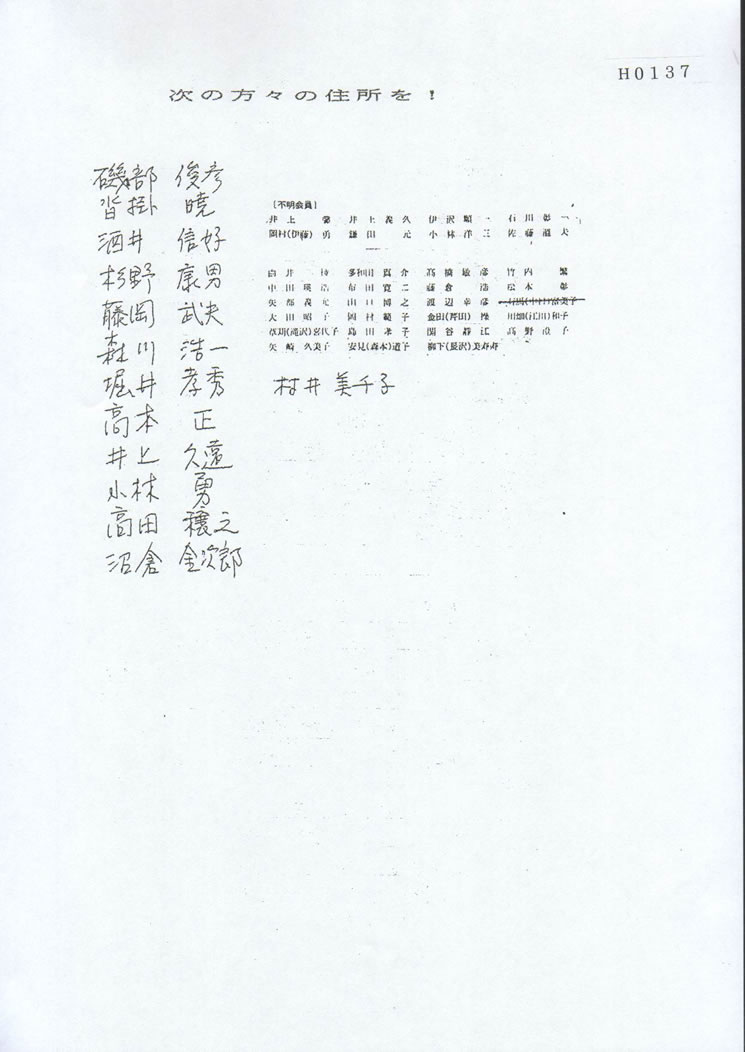 H0137
次の方々の住所を!
磯部 俊彦
沓掛 暁
酒井 信好
杉野 康男
藤岡 武夫
森川 浩一
堀井 孝秀
高本 正
井上 久遠
小林 勇
高田 穣之
沼倉 金次郎
〔不明会員〕
井上 馨 井上義久 伊沢順一 石川彰一
岡村(伊藤) 勇 鎌田 元 小林洋三 佐藤 夫
白井 多和田真介 髙橋敏彦 竹内 繁
中田瑛浩 布田寛二 藤倉 浩 松本 彰
矢部義 山口博之 渡辺幸彦 有馬(中村)富美子
大田昭子 岡村範子 金田(芹田) 操 川畑(江川)和子
草刈(滝沢)宮代子 島田孝子 関谷静江 髙野 子
矢崎久美子 安見(森本)道子 柳下(長沢)美寿寿
村井美千子